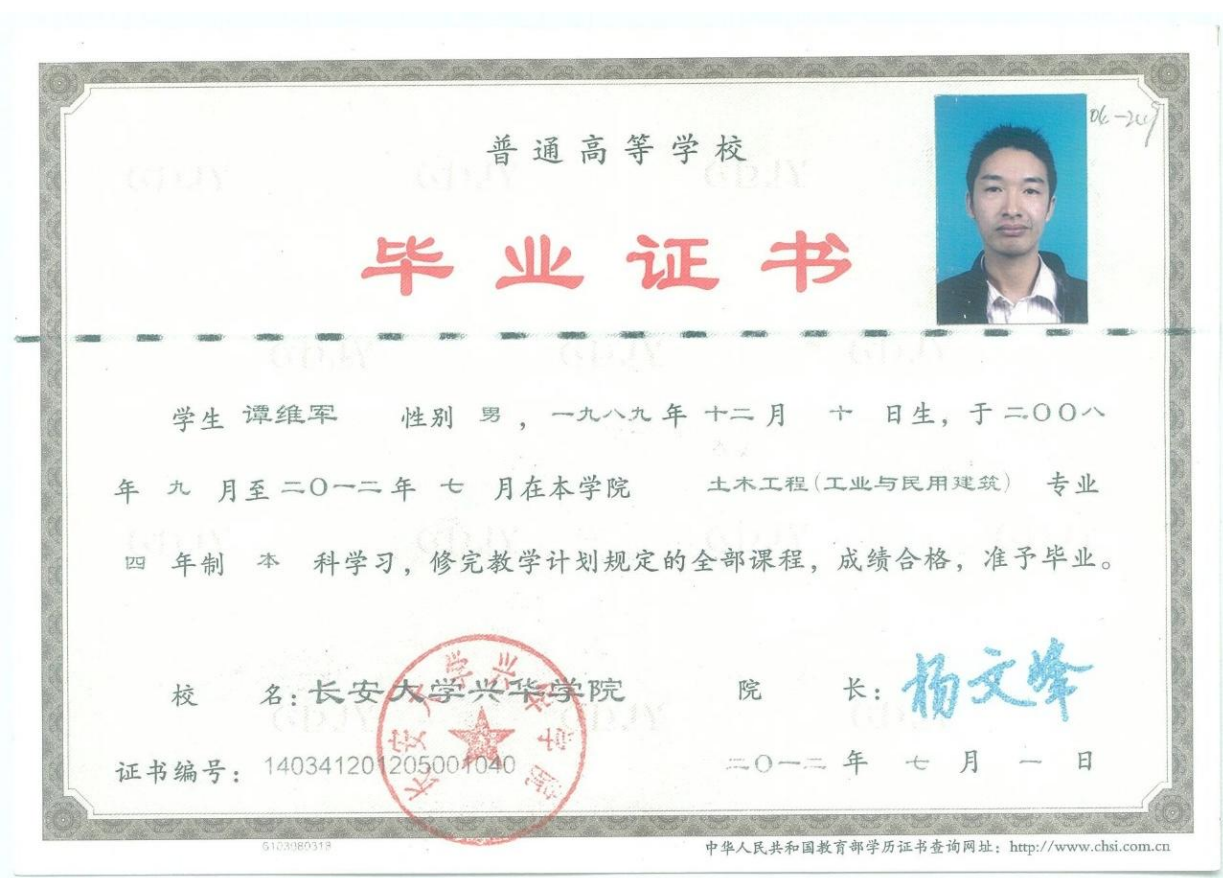 普通高等学校
毕业证书
学生 谭维军 性别 男，一九八九年 十二月 十 日生，于二〇〇八
年 九 月至二〇一二年 七 月在本学院 土木工程(工业与民用建筑) 专业
四 年制 本 科学习，修完教学计划规定的全部课程，成绩合格，准予毕业。
校 名：长安大学兴华学院 院 长：杨文峰
证书编号：140341201205001040 二〇一二年 七 月 一 日
长安大学兴华学院
6103980318 中华人民共和国教育部学历证书查询网址：http://www.chsi.com.cn